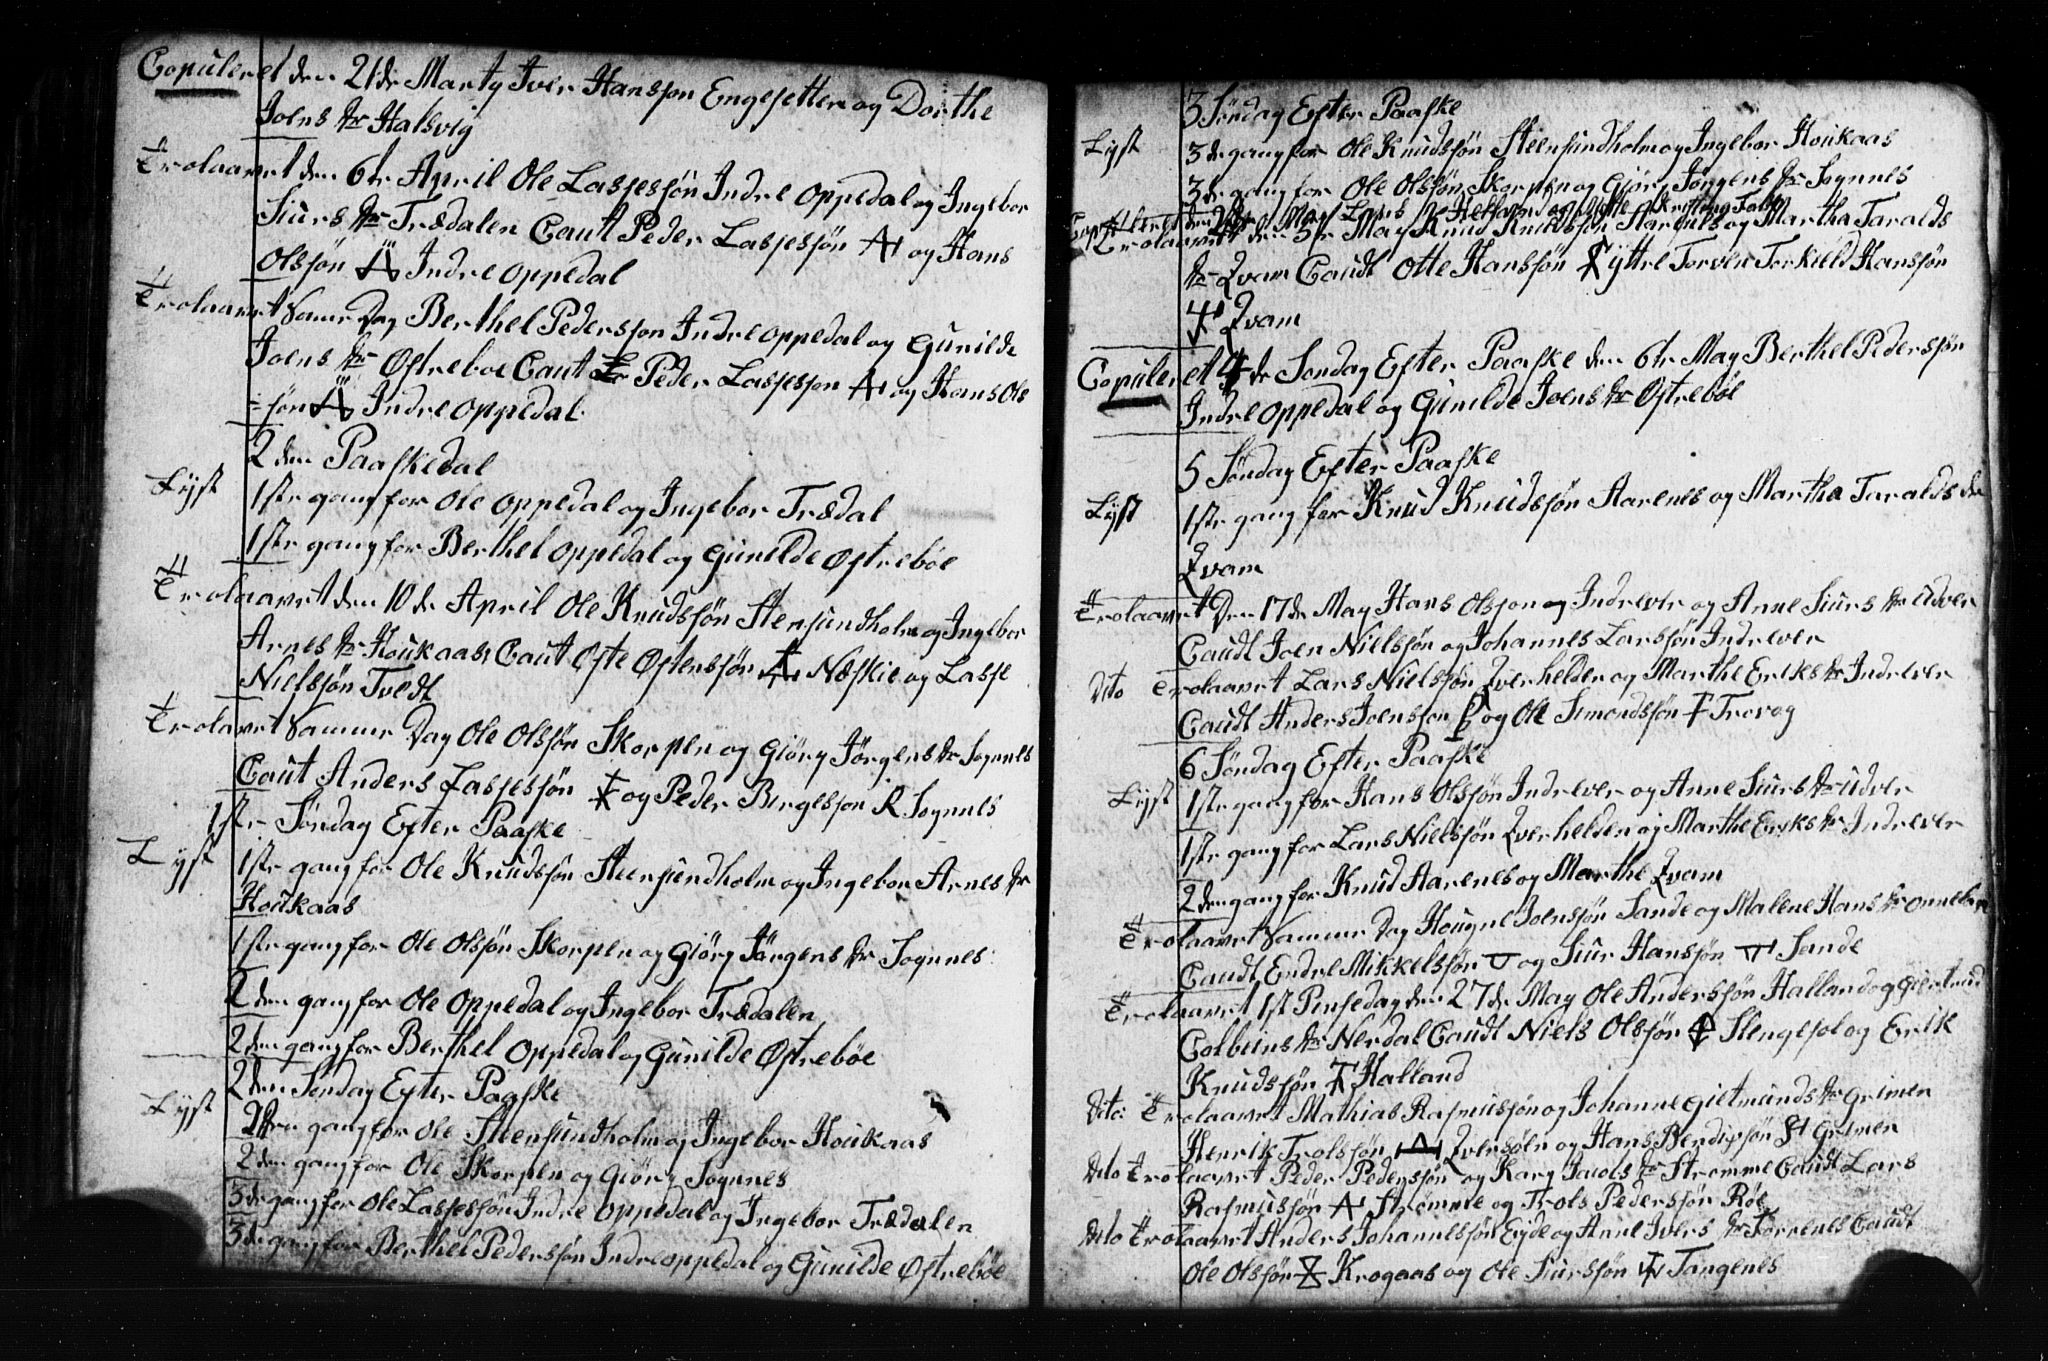 Copuleret den 21de Marty Iver Hansson Engesetter og Dorthe
Joens dr Halsvig
Trolaavet den 6te April Ole Lassesøn Indre Oppedal og Ingebor
Siurs dr Trædalen Caut Peder Lassesøn og Hans
Olssøn Indre Oppedal
Trolaavet Samme Dag Berthel Pedersson Indre Oppedal og Gunilde
Joens dr Østreboe Caut Peder Lassesson og Hans Ols
=søn Indre Oppedal
2den Paaskedal
Lyst 1ste gang for Ole Oppedal og Ingebor Trædal
1ste gang for Berthel Oppedal og Gunilde Østrebøe
Trolaavet den 10de April Ole Knudssøn Stensundholm og Ingebor
Arnes dr Houkaas Caut Øste Østenssøn Næskie og Lasse
Nielssøn Tvedt
Trolavet Samme Dag Ole Olssøn Skorpen og Giørg Jørgens dr Sognnes
Caut Anders Lassesøn og Peder Birgesson R Sognnes
1ste Søndag Efter Paaske
Lyst 1ste gang for Ole Knudssøn Steensundholm og Ingebor Arnes dr
Houkaas
1ste gang for Ole Olssøn Skorpen og Giørg Jørgens dr Sognnes
2den gang for Ole Oppedal og Ingebor Trædalen
2den gang for Berthel Oppedal og Gunilde Østrebøe
2den Søndag Efter Paaske
Lyst 2den gang for Ole Steensundholm og Ingebor Houkaas
2den gang for Ole Skorpen og Giørg Sognnes
3de gang for Ole Lassesøn Indre Oppedal og Ingebor Trædalen
3de gang for Berthel Pederssøn Indre Oppedal og Gunilde Østrebøe
3 Søndag Efter Paaske
Lyst 3de gang for Ole Knudssøn Steensundholm og Ingebor Houkaas
3de gang for Ole Olssøn Skorpen og Giørg Jørgens dr Sognnes
Trolaavet den 5te May Knud Knudssøn Aarenes og Martha Taralds
dr Qvam Caudt Otte Hanssøn Yttre Torven Torkield Hanssøn
Qvam
Copuleret 4de Søndag Efter Paaske den 6te May Berthel Pederssøn
Indre Oppedal og Gunilde Joens dr Østrebøe
5 Søndag Efter Paaske
Lyst 1ste gang for Knud Knudssøn Aarenes og Martha Taralds dr
Qvam
Trolaavet Den 17de May Hans Olsson og Indrever og Anne Siurs dr Udver
Caudt Joen Nielssøn og Johannes Larssøn Indrever
Dito Trolaavet Lars Nielssøn Qverhelden og Marthe Eriks dr Indrever
Caudt Anders Joensson og Ole Simondssøn Trovog
6 Søndag Efter Paaske
Lyst 1ste gang for Hans Olssøn Indrever og Anne Siurs dr Udver
1ste gang for Lars Nielssøn Qverhelden og Marthe Eriks dr Indrever
2den gang for Knud Aarenes og Marthe Qvam
Trolaavet Samme Dag Hougne Joenssøn Sande og Malene Hans dr
Caudt Endre Mikkelssøn og Siur Hanssøn Sande
Trolaavet 1st Pinsedag den 27de May Ole Anderssøn Halland og Giertrud
Colbeins dr Nerdal Caudt Niels Olssøn Stengesol og Erik
Knudssøn Halland
Dito: Trolaavet Mathias Rasmussøn og Johanne Gietmunds dr Grimen
Henrik Trolssøn Qversøen og Hans Bendixsøn Grimen
Dito Trolaavet Peder Pederssøn og Kary Jacobs dr Strømme Caudt Lars
Rasmussøn Strømme og Trols Pederssøn Røe
Dito Trolaavet Anders Johannessøn Eyde og Anne Ivers dr Torrenes Caudt
Ole Olssøn Krogaas og Ole Siurssøn Tangenes